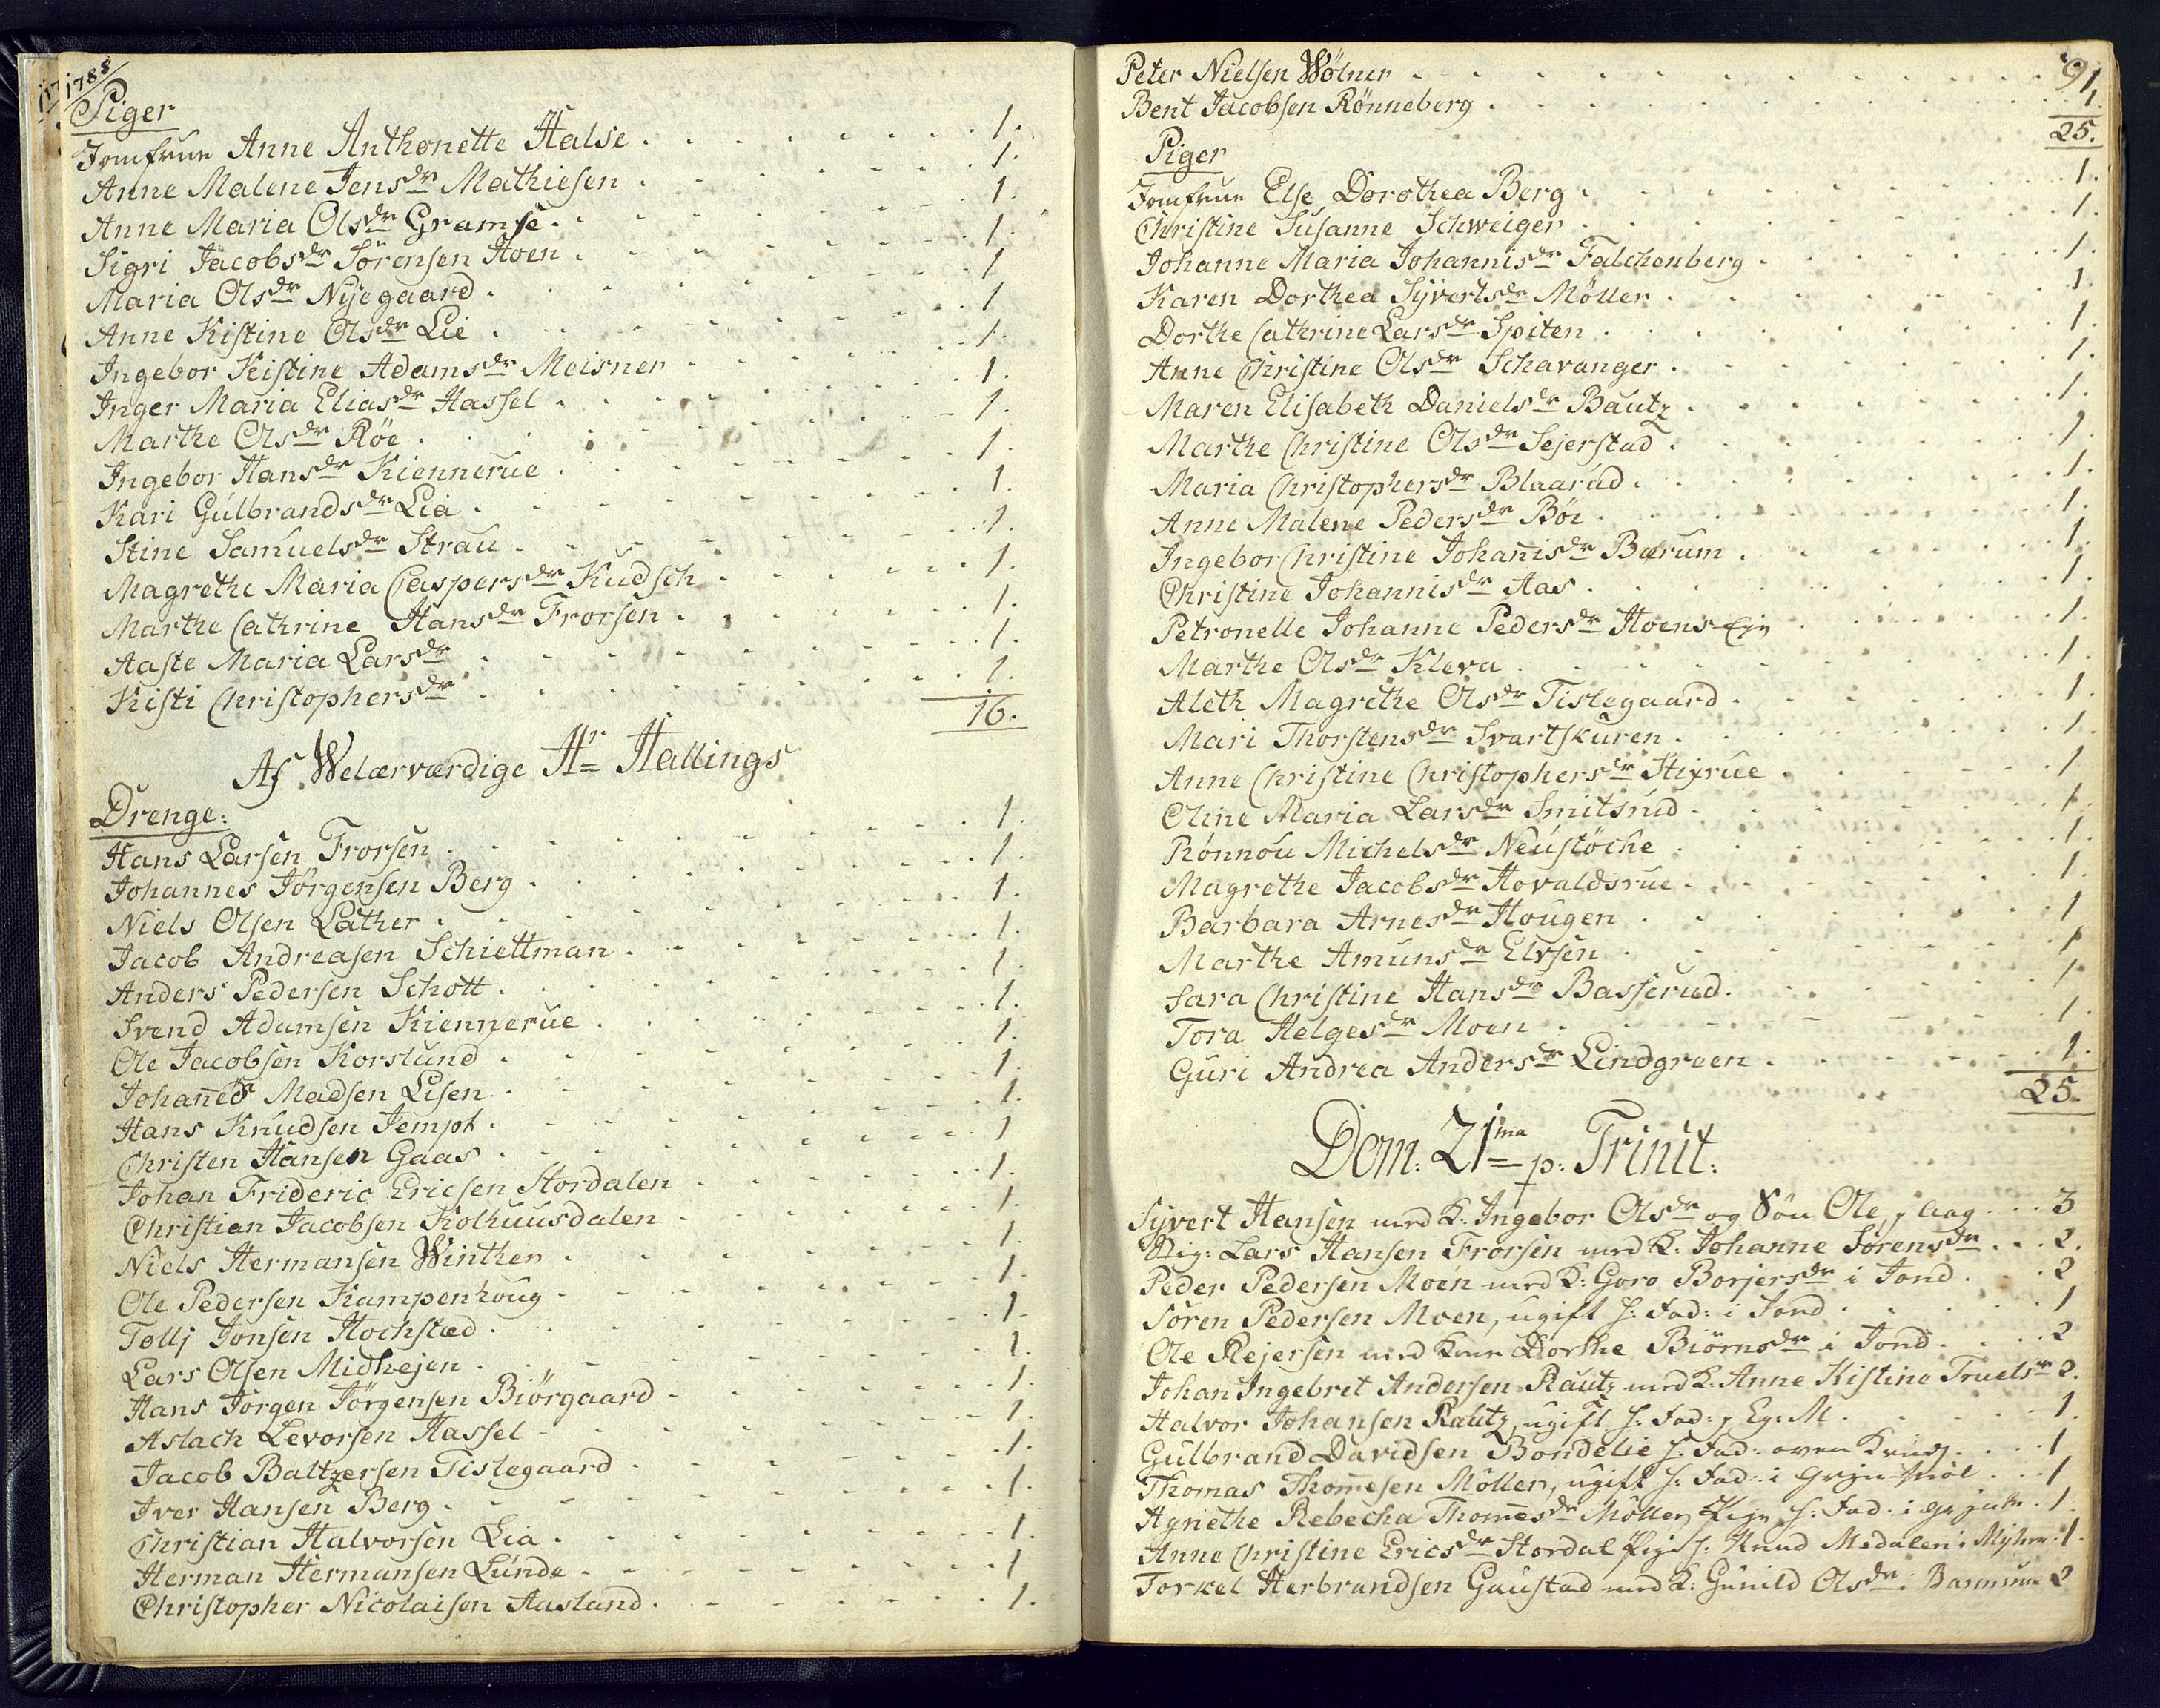 1788
Piger
Jomfrue Anne Anthonette Halse . . . 1.
Anne Malene Jensdr Mathiesen . . . 1.
Anne Maria Olsdr Gramse . . . 1.
Sigri Jacobsdr Sörensen Hoen . . . 1.
Maria Olsdr Nyegaard . . . 1
Anne Kistine Olsdr Lie . . . 1
Ingebor Kistine Adamsdr Meisner . . . 1.
Inger Maria Eliasdr Hassel . . . 1.
Marthe Olsdr Röe . . . 1.
Ingebor Hansdr Kiennerue . . . 1.
Kari Gulbrandsdr Lia . . . 1.
Stine Samuelsdr Strau . . . 1.
Magrethe Maria Caspersdr Kudsch . . . 1.
Marthe Cathrine Hansdr Frorsen . . . 1.
Aaste Maria Larsdr . . . 1.
Kisti Christophersdr . . . 1.
16.
Af Welærværdige Hr Hallings
Drenge:
Hans Larsen Frorsen . . . 1.
Johannes Jörgensen Berg . . . 1.
Niels Olsen Lather . . . 1.
Jacob Andreasen Schiettman . . . 1.
Anders Pedersen Schott . . . 1.
Svend Adamsen Kiennerue . . . 1.
Ole Jacobsen Korslund . . . 1.
Johan̄es Madsen Lisen . . . 1.
Hans Knudsen Jempt . . . 1.
Christen Hansen Gaas . . . 1
Johan Frideric Ericsen Stordalen . . . 1.
Christian Jacobsen Kolkuusdalen . . . 1.
Niels Hermansen Winther . . . 1.
Ole Pedersen Kampenhoug . . . 1.
Tollj Jonsen Hochstad . . . 1.
Lars Olsen Midhejen . . . 1.
Hans Jörgen Jörgensen Biörgaard . . . 1.
Aslach Levorsen Hassel . . . 1.
Jacob Baltzersen Tislegaard . . . 1.
Iver Hansen Berg . . . 1.
Christian Halvorsen Lia . . . 1.
Herman Hermansen Lunde . . . 1
Christopher Nicolaisen Aasland . . . 1.
91
Peter Nielsen Wölner . . .
Bent Jacobsen Rönneberg . . . 1.
25.
Piger
Jomfrue Else Dorothea Berg . . . 1.
Christine Susanne Schweiger . . . 1.
Johanne Maria Johannisdr Falchenberg . . . 1.
Karen Dorthea Syvertsdr Möller . . . 1.
Dorthe Cathrine Larsdr Spiten . . . 1.
Anne Christine Olsdr Schavanger . . . 1.
Maren Elisabeth Danielsdr Bautz . . . 1.
Marthe Christine Olsdr Sejerstad . . . 1.
Maria Christophersdr Blaarud . . . 1.
Anne Malene Pedersdr Böe . . . 1.
Ingebor Christine Johan̄isdr Bærum . . . 1.
Christine Johannisdr Aas . . . 1.
Petronelle Johanne Pedersdr Hoens Eje . . . 1.
Marthe Olsdr Kleva . . . 1.
Aleth Magrethe Olsdr Tislegaard . . . 1.
Mari Thorstensdr Svartskuren . . . 1.
Anne Christine Christophersdr Stixrue . . . 1
Oline Maria Larsdr Smitsrud . . . 1.
Rönnou Michelsdr Neustöche . . . 1.
Magrethe Jacobsdr Hovaldsrue . . . 1.
Barbara Arnesdr Hougen . . . 1
Marthe Amunsdr Elvsen . . . 1
Sara Christine Hansdr Basserud . . . 1
Tora Helgesdr Moen . . . 1.
Guri Andrea Andersdr Lindgreen . . . 1.
25.
Dom: 21ma p: Trinit:
Syvert Hansen med K: Ingebor Olsdr og Sön Ole, p Aag . . . 3
Sig: Lars Hansen Frorsen med K: Johanne Sörensdr . . . 2.
Peder Pedersen Moen med K: Goro Borjersdr i Jond . . . 2
Sören Pedersen Moen, ugift h: Fad: i Jond . . . 1
Ole Rejersen med Kone Dorthe Biörnsdr i Jond . . . 2
Johan Ingebret Andersen Rautz med K: Anne Kistine Truelsr 2.
Halvor Johansen Rautz, ugift h: Fad: p Eg: M . . . 1.
Gulbrand Davidsen Bondelie h: Fad: oven . . . 1
Thomas Thom̄esen Möller, ugift h: Fad: i . . . 1
Agnethe Rebecha Thom̄esdr Möller, Pige h: Fad: i . . . 1.
Anne Christine Ericsdr Stordal Pige h: Knud Medalen i . . . 1.
Torkel Herbrandsen Gaustad med K: Gunild Olsdr i . . . 2